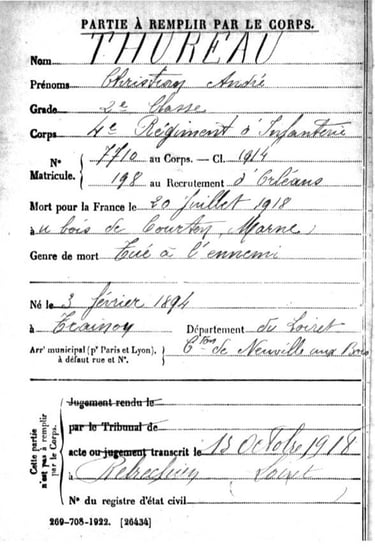 PARTIE À REMPLIR PAR LE CORPS.
Nom THUREAU
Prénoms Christian André
Grade 2e Classe
Corps 4e Régiment d'Infanterie
N° Matricule. 7710 au Corps. — Cl. 1914
198 au Recrutement d'Orléans
Mort pour la France le 20 Juillet 1918
à u bois de Courton (Marne)
Genre de mort Tué à l'ennemi
Né le 3 février 1894
à Département du Loiret
Arr' municipal (p' Paris et Lyon), à défaut rue et N°. Cton de Neuville aux Bois
Cette partie n'est pas à remplir par le Corps.
Jugement rendu le
par le Tribunal de
acte ou jugement transcrit le 13 Octobre 1918
à Loiret
N° du registre d'état civil
269-708-1922. [26434]